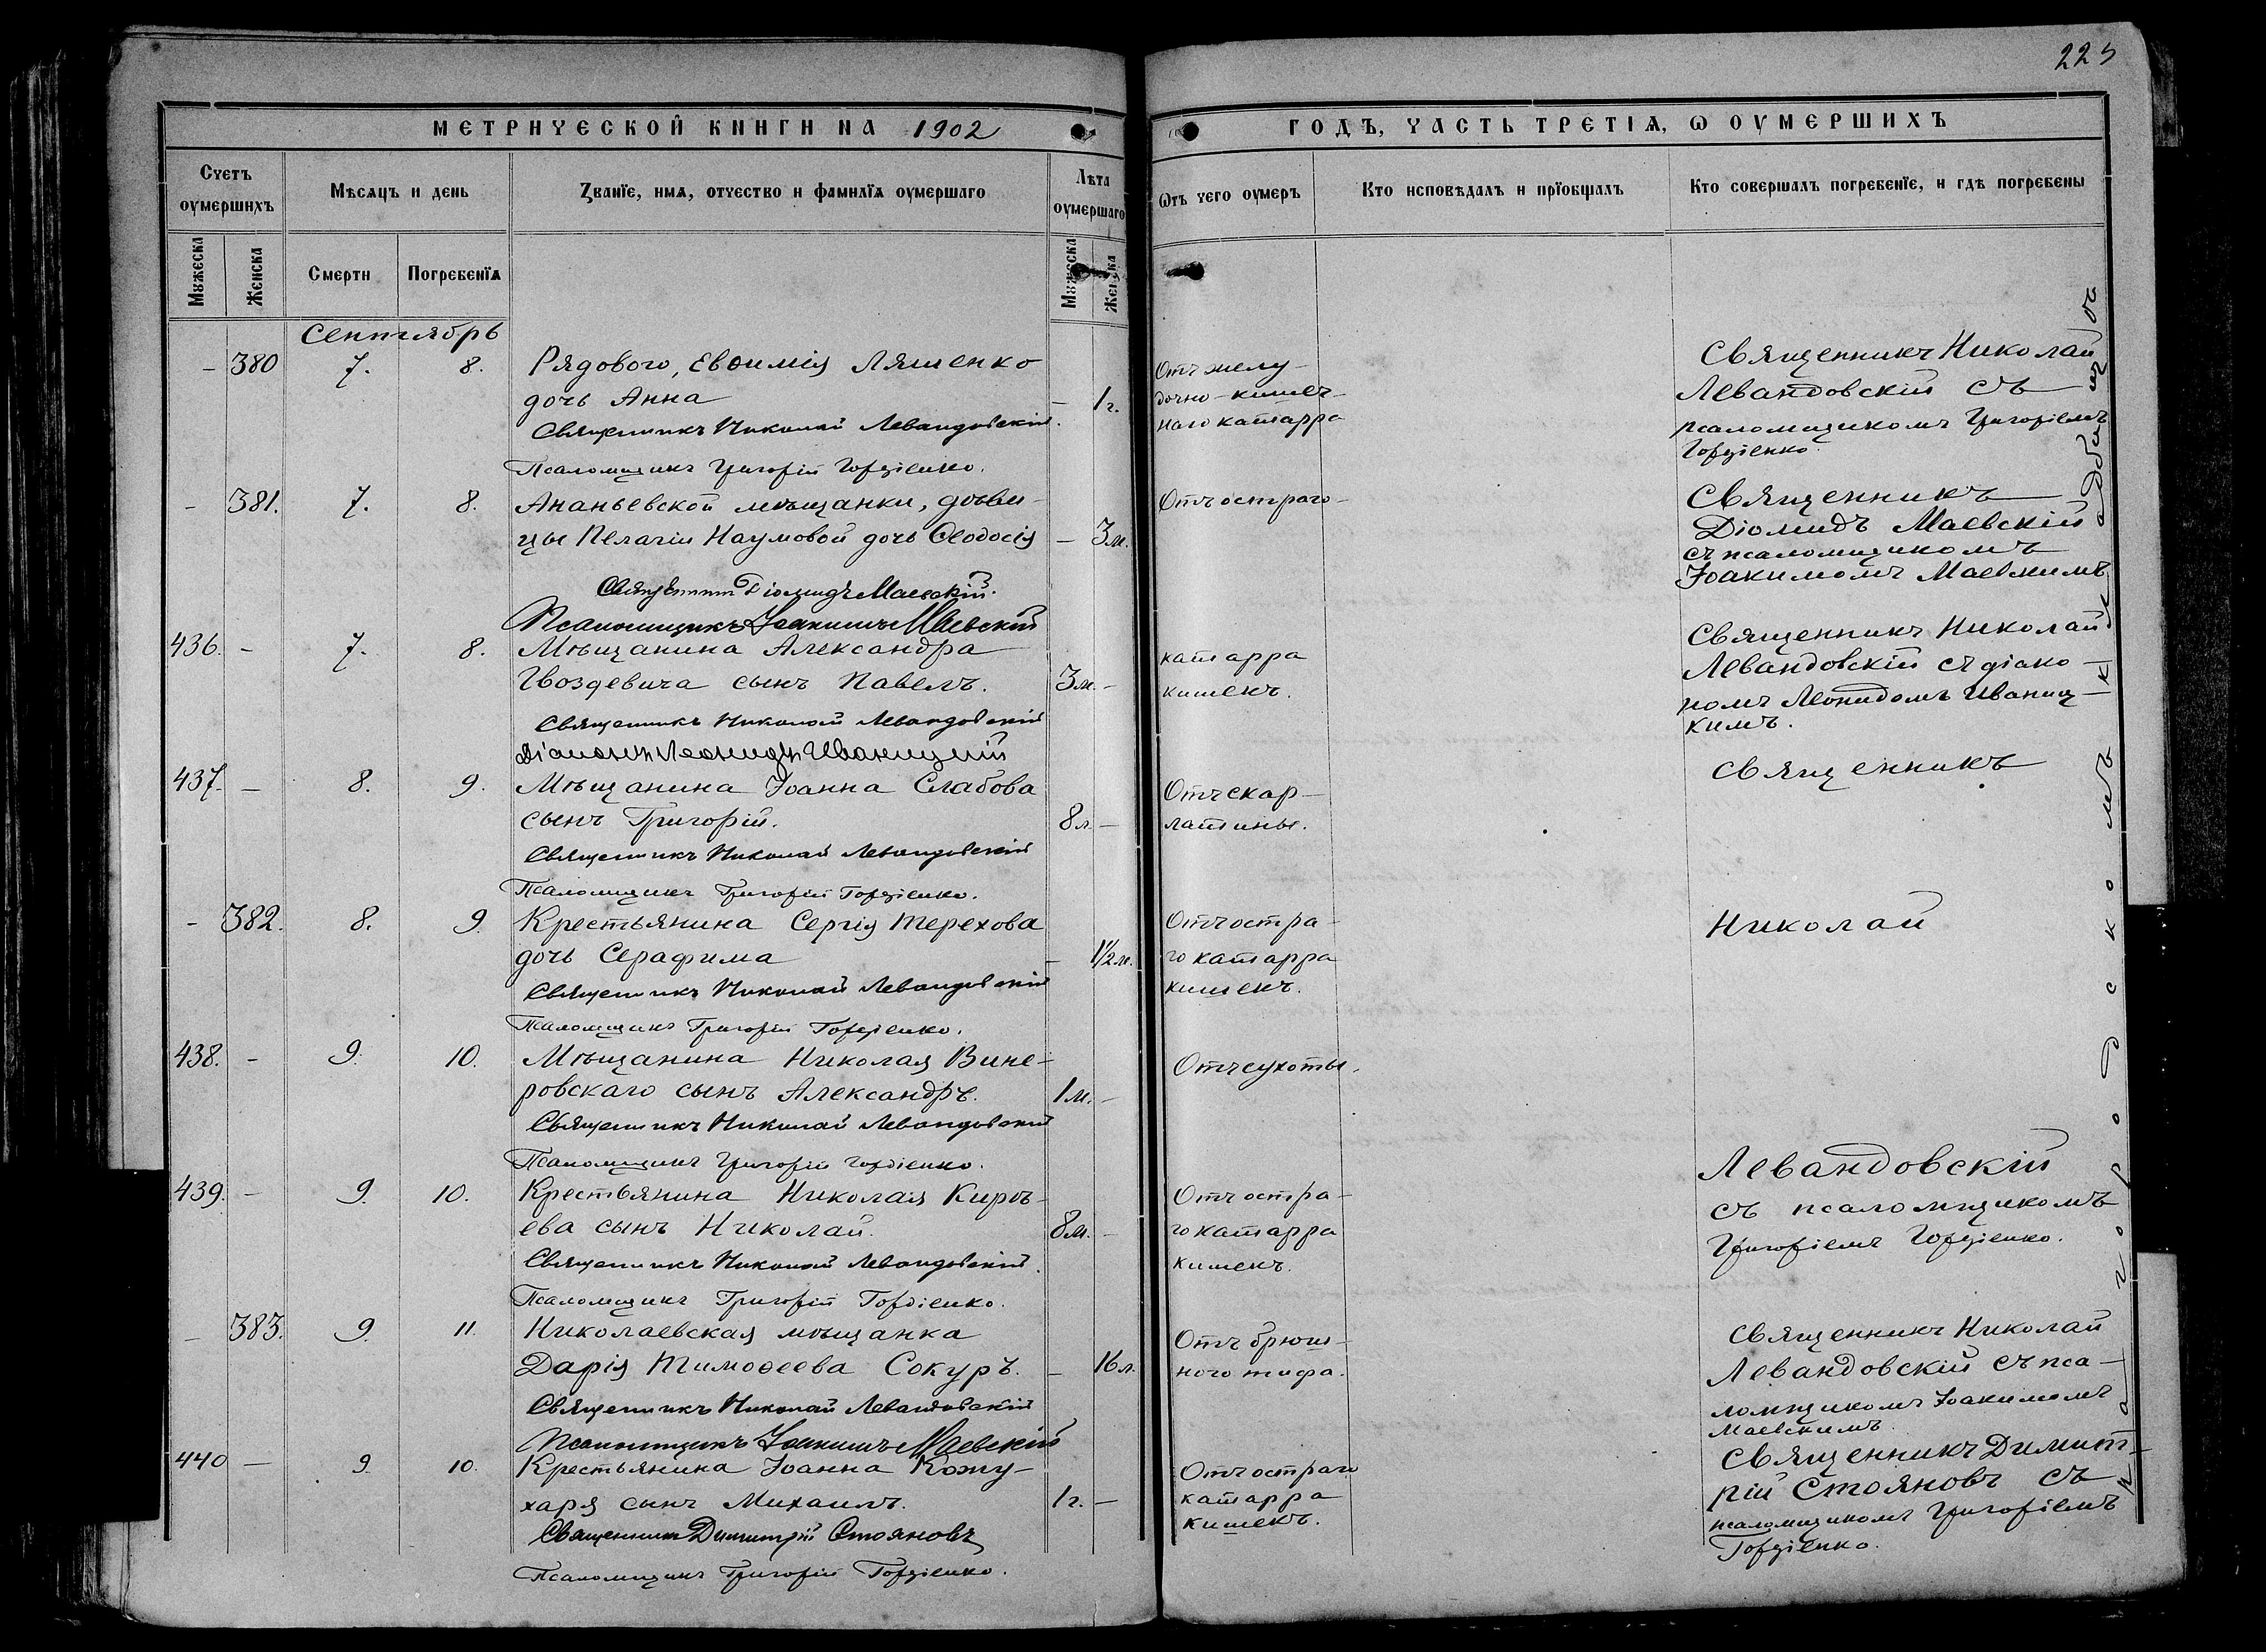 223
МЕТРИЧЕСКОЙ КНИГИ НА 1902
ГОДЪ, ЧАСТЬ ТРЕТІЯ, Ѡ ОУМЕРШИХЪ
Счетъ оумершихъ
Мѣсяцъ и день
Званїе, имя, отчество и фамилїя оумершаго
Лѣта оумершаго
Ѿтъ чего оумеръ
Кто исповѣдалъ и прїобщалъ
Кто совершалъ погребенїе, и гдѣ погребены
Мужеска
Женска
Смерти
Погребенїя
Мужеска
Женска
Сентябрь
– 380 7. 8. Рядового, Евѳимія Ляшенко
дочь Анна – 1 г.
Священникъ Николай Левандовскій.
Псаломщикъ Григорій Гордіенко.
Отъ желу-
дочно-кишеч-
наго катарра
Священникъ Николай
Левандовскій съ
псаломщикомъ Григоріемъ
Гордіенко.
– 381. 7. 8. Ананьевской мѣщанки, дѣви-
цы Пелагіи Наумовой дочь Ѳеодосія – 3 м.
Священникъ Діомидъ Маевскій.
Псаломщикъ Іоакимъ Маевскій
Отъ остраго
Священникъ
Діомидъ Маевскій
съ псаломщикомъ
Іоакимомъ Маевскимъ
436. – 7. 8. Мѣщанина Александра
Гвоздевича сынъ Павелъ. 3 м. –
Священникъ Николай Левандовскій
Діаконъ Леонидъ Иваницкій
катарра
кишекъ.
Священникъ Николай
Левандовскій съ діако-
номъ Леонидомъ Иваниц-
кимъ.
437. – 8. 9. Мѣщанина Іоанна Слабова
сынъ Григорій. 8 л. –
Священникъ Николай Левандовскій
Псаломщикъ Григорій Гордіенко.
Отъ скар-
латины.
Священникъ
– 382. 8. 9. Крестьянина Сергія Терехова
дочь Серафима – 1½ м.
Священникъ Николай Левандовскій
Псаломщикъ Григорій Гордіенко.
Отъ остра-
го катарра
кишекъ.
Николай
438. – 9. 10. Мѣщанина Николая Вине-
ровскаго сынъ Александръ. 1 м. –
Священникъ Николай Левандовскій
Псаломщикъ Григорій Гордіенко.
Отъ сухоты.
Левандовскій
439. – 9. 10. Крестьянина Николая Кирѣ-
ева сынъ Николай. 8 м. –
Священникъ Николай Левандовскій.
Псаломщикъ Григорій Гордіенко.
Отъ остра-
го катарра
кишекъ.
съ псаломщикомъ
Григоріемъ Гордіенко.
– 383. 9. 11. Николаевская мѣщанка
Дарія Тимоѳеева Сокуръ. – 16 л.
Священникъ Николай Левандовскій
Псаломщикъ Іоакимъ Маевскій
Отъ брюш-
ного тифа.
Священникъ Николай
Левандовскій съ пса-
ломщикомъ Іоакимомъ
Маевскимъ.
440 – 9. 10. Крестьянина Іоанна Кожу-
харя сынъ Михаилъ. 1 г. –
Священникъ Димитрій Стояновъ
Псаломщикъ Григорій Гордіенко.
Отъ остраго
катарра
кишекъ.
Священникъ Димит-
рій Стояновъ съ
псаломщикомъ Григоріемъ
Гордіенко.
на городскомъ кладбищѣ